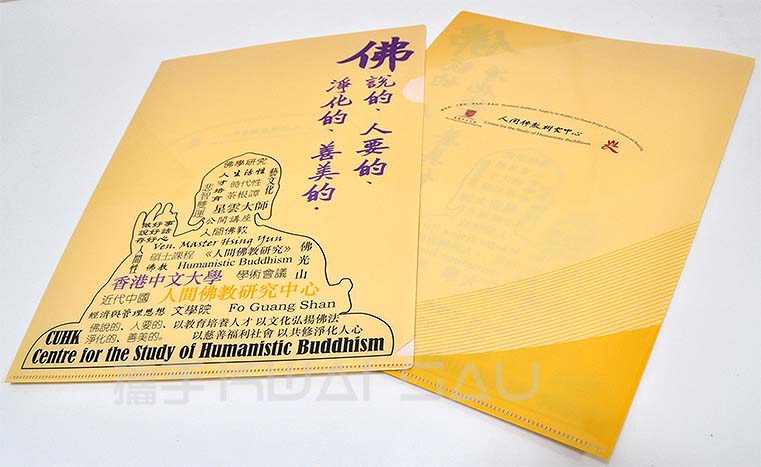 佛
說的、人要的、
淨化的、善美的。
佛學研究
人生活性
藝文化
人才培育
時代性
悲智雙運
茶根譚
星雲大師
公開講座
人間佛教
做好事
說好話
存好心
Ven. Master Hsing Yun
人間性
碩士課程 《人間佛教研究》
佛教 Humanistic Buddhism
佛光山
香港中文大學 學術會議
近代中國 人間佛教研究中心
經濟與管理思想 文學院 Fo Guang Shan
佛說的、人要的、以教育培養人才 以文化弘揚佛法
淨化的、善美的。 以慈善福利社會 以共修淨化人心
CUHK
Centre for the Study of Humanistic Buddhism
人間佛教研究中心
Centre for the Study of Humanistic Buddhism
攜手 KWAI SAU